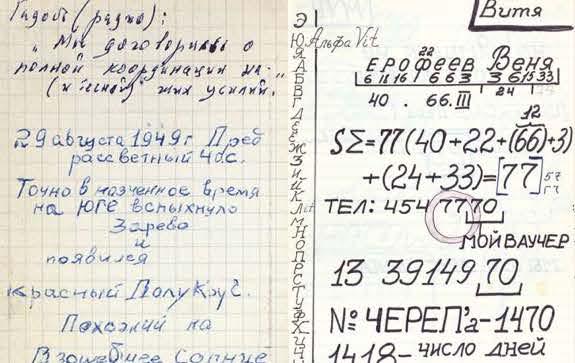 Гидовь (редко):
"Мы договорились о
полной координации на-
ших усилий."
29 августа 1949г Пред
рассветный час.
Точно в назченное время
на юге вспыхнуло
Зарево
и
появился
красный Полукруг.
Похожий на
Взошедшее Солнце
Витя
Э
Ю АльфаVit
Я
А
Б
В
Г
Д
Е
Ё
Ж
З
И
Й
К
Л
М
Н
О
П
Р
С
Т
У
Ф
Х
Ц
Ч
22
ЕРОФЕЕВ Веня
6 18 16 1 6 6 3 3 6 15 33
24
40 . 66.III
12
SΣ=77(40+22+(66)+3)
+(24+33)=[77] 57
ТЕЛ: 454 77 70
МОЙ ВАУЧЕР
13 39149 70
№ ЧЕРЕП'а-1470
1418- число дней